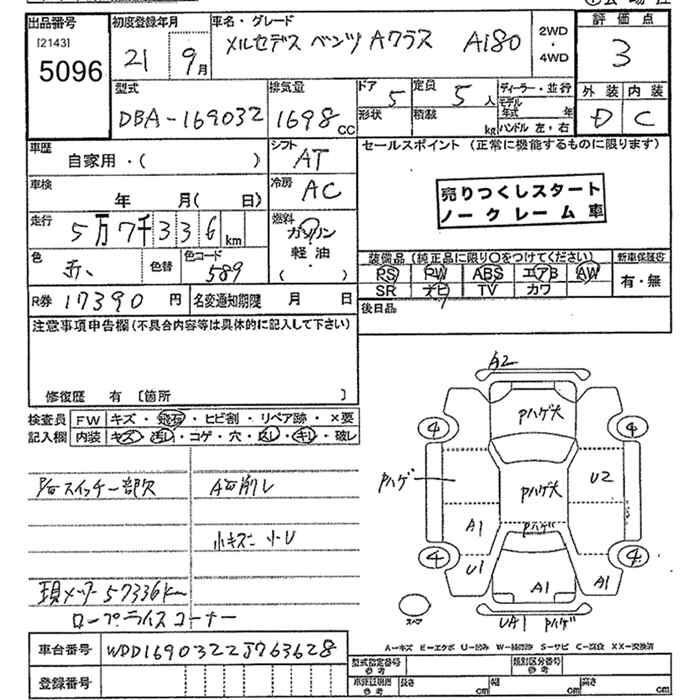 出品番号 初度登録年月 車名・グレード 評価点
[2143]
5096 21 9月 メルセデス ベンツ Aクラス A180 2WD・4WD 3
型式 排気量 ドア 定員 ディーラー・並行 外装 内装
DBA-169032 1698 CC 5 5人 モデル年式 年 D C
形状 積載 kg ハンドル 左・右
車歴 自家用・( ) シフト AT セールスポイント (正常に機能するものに限ります)
車検 年 月( 日) 冷房 AC
売りつくしスタート
ノークレーム車
走行 5万7千336km 燃料 ガソリン
軽油
( )
色 赤、 色替 色コード 589
装備品 (純正品に限り○をつけてください) 新車保証書
PS PW ABS エアB AW 有・無
SR ナビ TV カワ
R券 17390円 名変通知期限 月 日 後日品
注意事項申告欄(不具合内容等は具体的に記入して下さい)
修復歴 有 [箇所 ]
検査員 FW キズ・飛石・ヒビ割・リペア跡・×要
記入欄 内装 キズ・汚レ・コゲ・穴・・キレ・破レ
スイッチ一部欠 A石削レ
小キズ 小U
現メーター57336km
ロープライスコーナー
A2
Pハゲ大
4 4
Pハゲ Pハゲ大 U2
A1 Pハゲ
4 4
U1 A1 A1
スペア UA1 Pハゲ
A=キズ E=エクボ U=凹み W=補修跡 S=サビ C=腐食 XX=交換済
車台番号 WDD1690322J763628
型式指定番号 参考 類別区分番号 参考
登録番号
車検証明書 参考 長さ cm 幅 cm 高さ cm